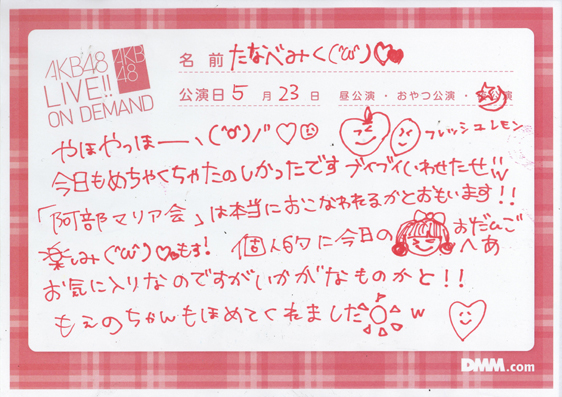 AKB48
LIVE!!
ON DEMAND
AKB
48
名前 たなべみく(^ω^)♡♥
公演日 5月23日 昼公演・おやつ公演・夜公演
やほやっほー、(^o^)ノ" ♡☺ フレッシュレモン
今日もめちゃくちゃたのしかったです ブイブイいわせたぜ!!w
「阿部マリア会」は本当におこなわれるかとおもいます!!
楽しみ(^ω^)♡♥もす! 個人的に今日の おだんご
へあ
お気に入りなのですがいかがなものかと!!
もえのちゃんもほめてくれました w
DMM.com